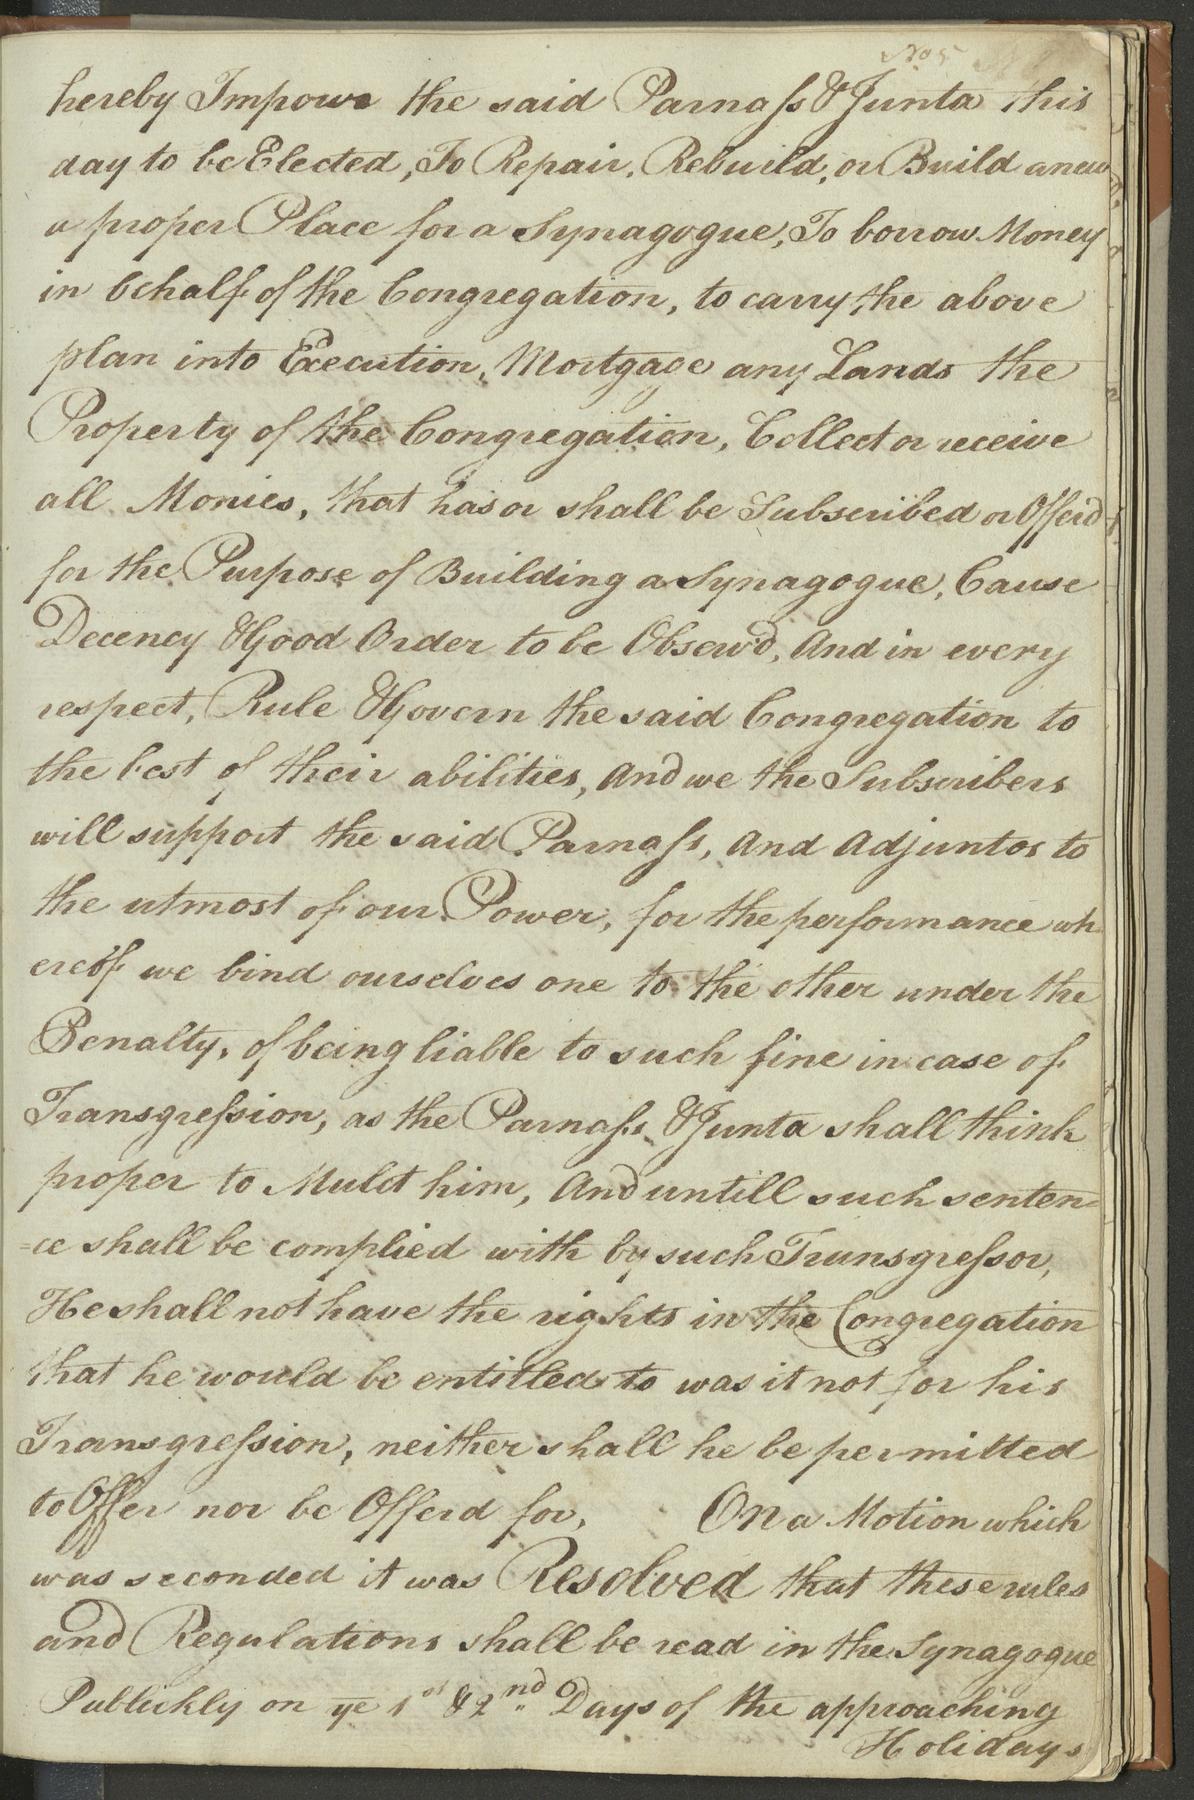 No 5
hereby Impowr the said Parnass & Junta this
day to be Elected, To Repair, Rebuild, or Build anew
a proper Place for a Synagogue, To borrow Money
in behalf of the Congregation, to carry the above
plan into Execution, Mortgage any Lands the
Property of the Congregation, Collect or receive
all Monies, that has or shall be Subscribed or Offerd
for the Purpose of Building a Synagogue, Cause
Decency & Good Order to be Observ'd, And in every
respect, Rule & Govern the said Congregation to
the best of their abilities, And we the Subscribers
will support the said Parnass, And Adjuntos to
the utmost of our Power, for the performance wh
ereof we bind ourselves one to the other under the
Penalty, of being liable to such fine in case of
Transgression, as the Parnass & Junta shall think
proper to Mulct him, And untill such senten=
=ce shall be complied with by such Transgressor,
He shall not have the rights in the Congregation
that he would be entitled to was it not for his
Transgression, neither shall he be permitted
to Offer nor be Offerd for, On a Motion which
was seconded it was Resolved that these rules
and Regulations shall be read in the Synagogue
Publickly on ye 1st & 2nd Days of the approaching
Holidays